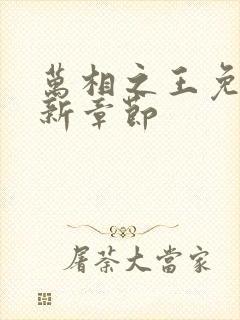 萬相之王免
新章節
屠荼大當家